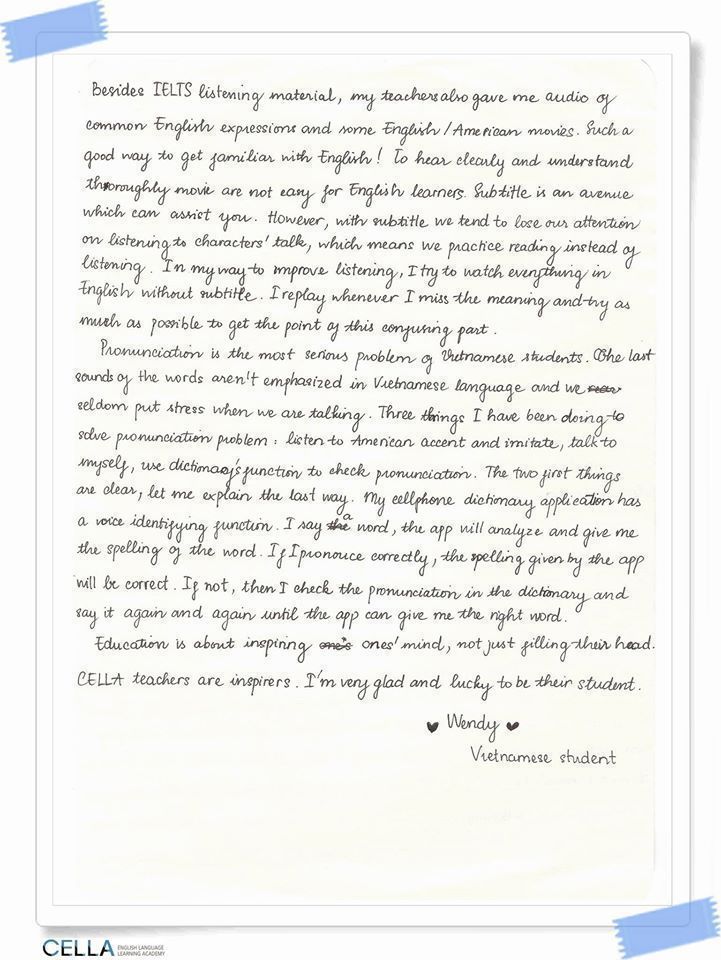 Besides IELTS listening material, my teachers also gave me audio of
common English expressions and some English / American movies. Such a
good way to get familiar with English! To hear clearly and understand
thoroughly movie are not easy for English learners. Subtitle is an avenue
which can assist you. However, with subtitle we tend to lose our attention
on listening to characters' talk, which means we practice reading instead of
listening. In my way to improve listening, I try to watch everything in
English without subtitle. I replay whenever I miss the meaning and try as
much as possible to get the point of this confusing part.
Pronunciation is the most serious problem of Vietnamese students. The last
sounds of the words aren't emphasized in Vietnamese language and we
seldom put stress when we are talking. Three things I have been doing to
solve pronunciation problem: listen to American accent and imitate, talk to
myself, use dictionary's function to check pronunciation. The two first things
are clear, let me explain the last way. My cellphone dictionary application has
a voice identifying function. I say a word, the app will analyze and give me
the spelling of the word. If I pronouce correctly, the spelling given by the app
will be correct. If not, then I check the pronunciation in the dictionary and
say it again and again until the app can give me the right word.
Education is about inspiring ones' mind, not just filling their head.
CELLA teachers are inspirers. I'm very glad and lucky to be their student.
♥ Wendy ♥
Vietnamese student
CELLA ENGLISH LANGUAGE
LEARNING ACADEMY